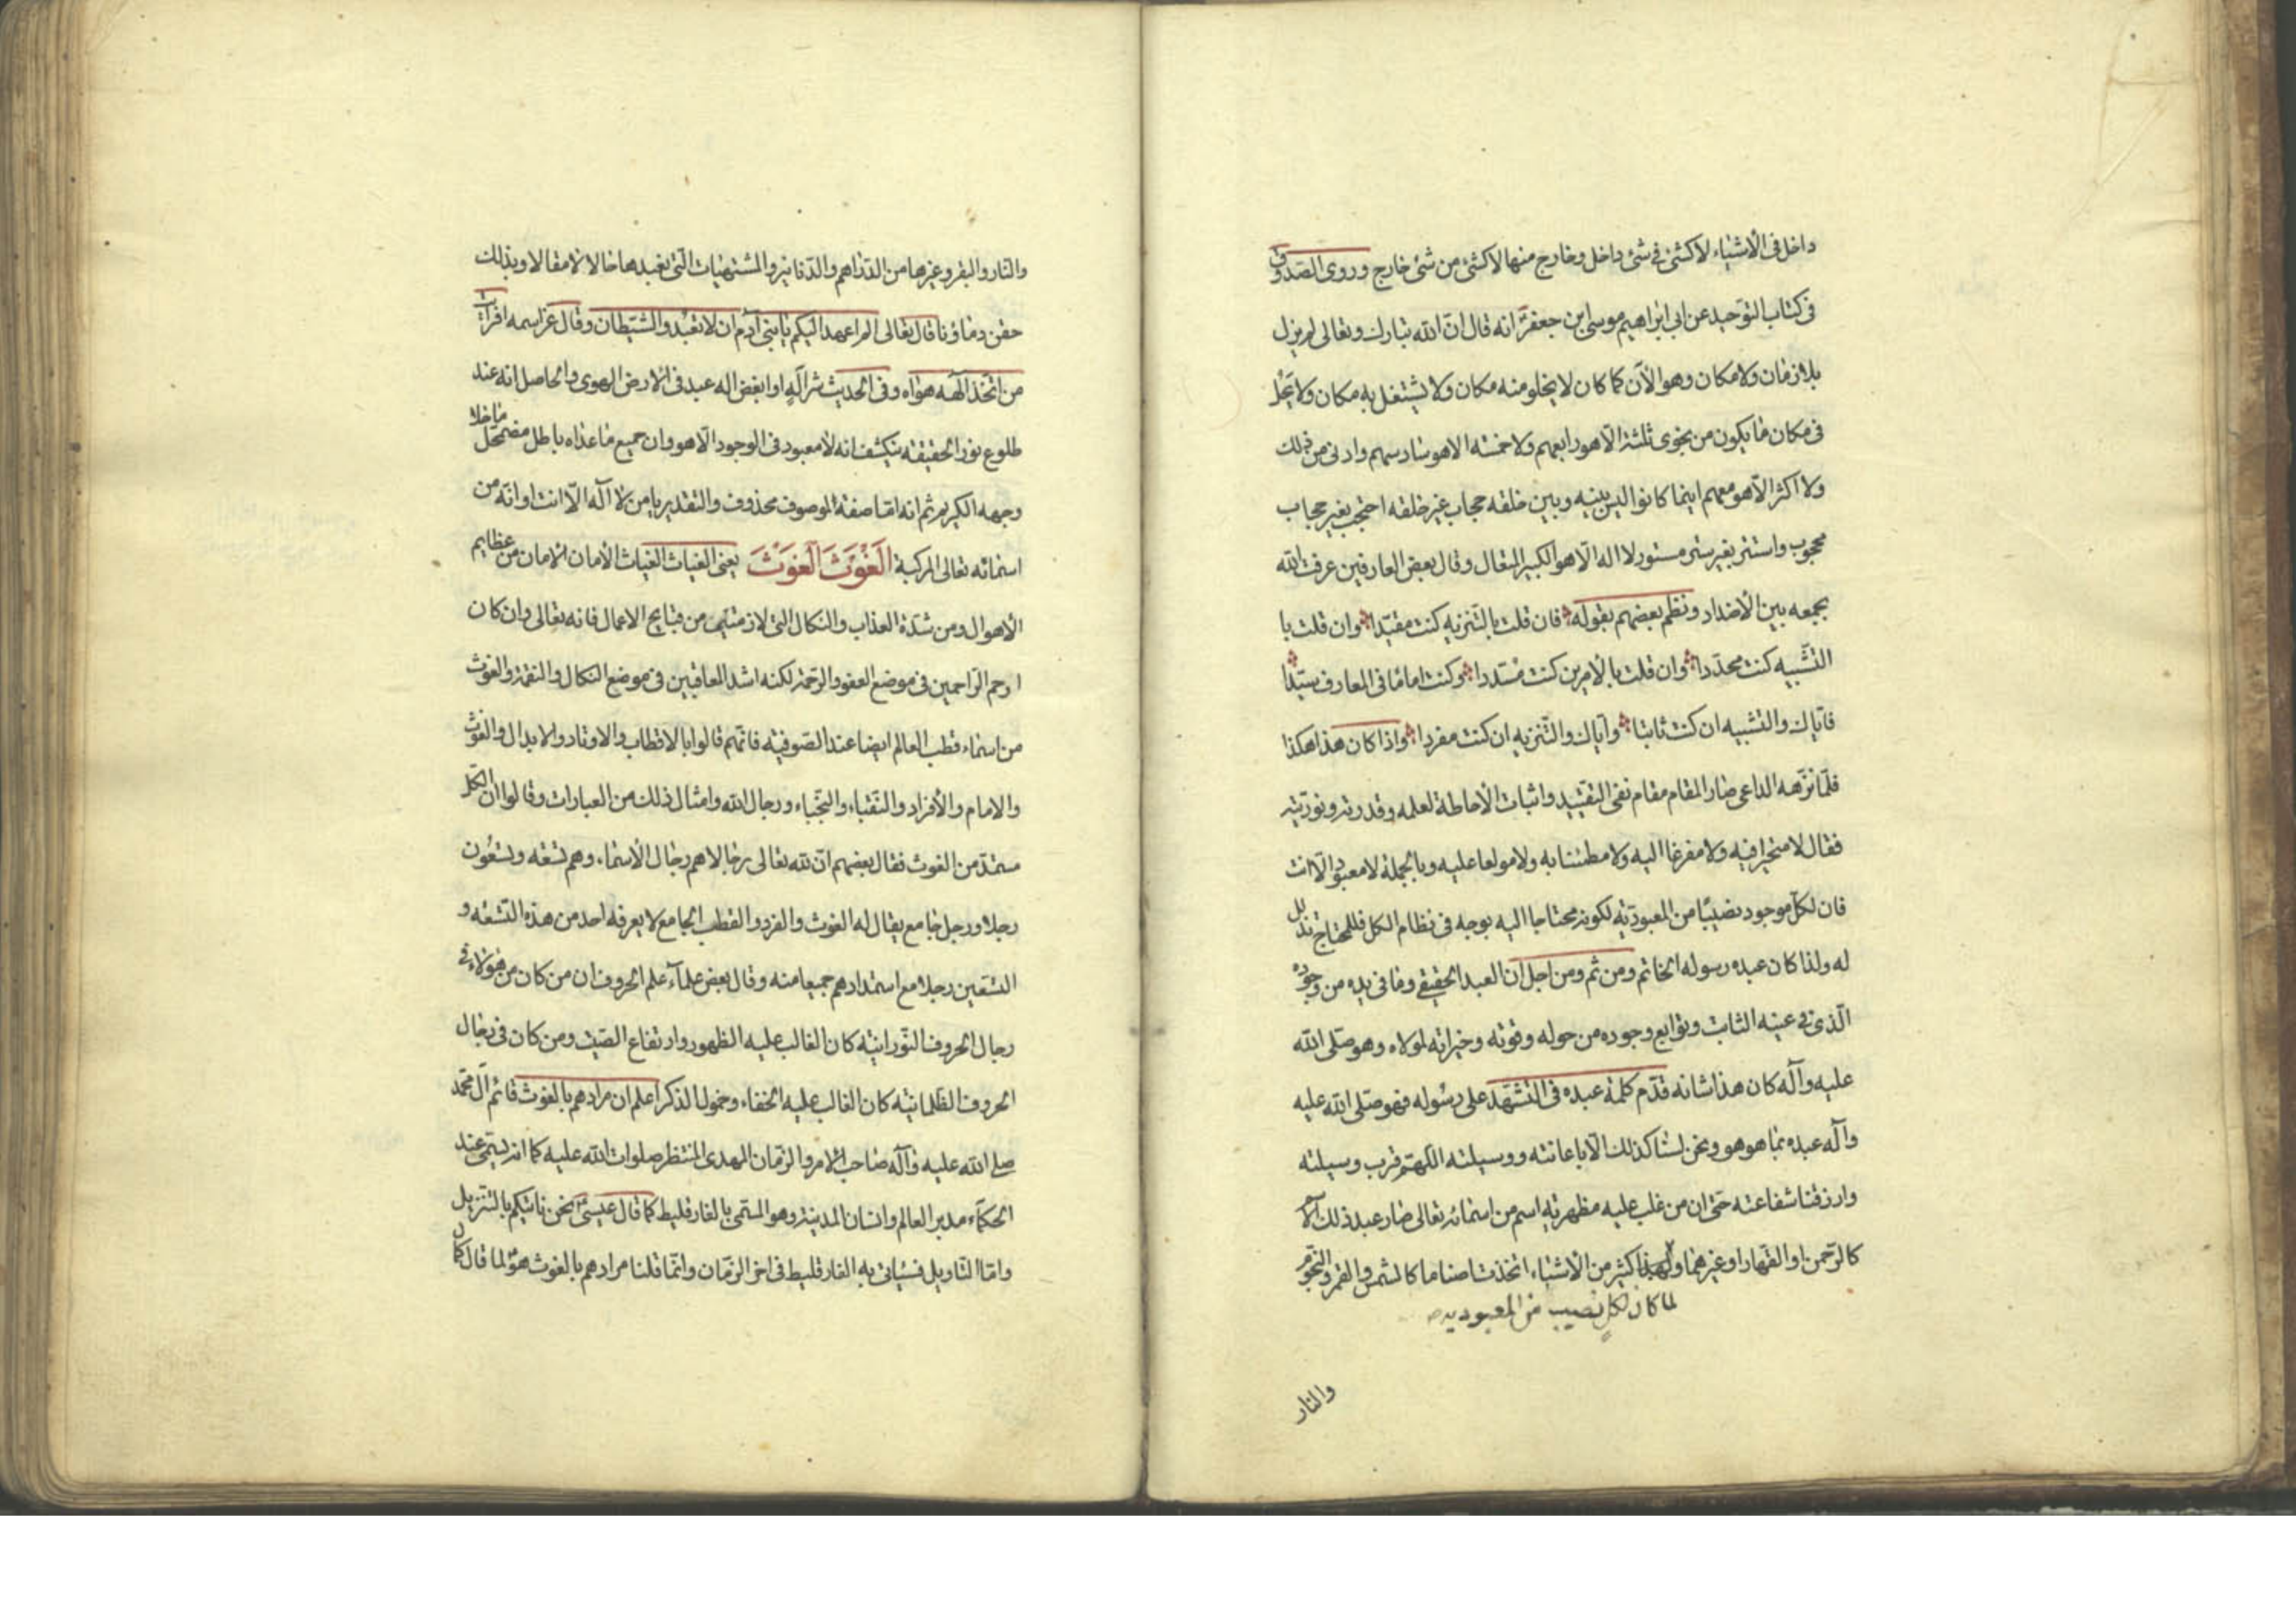 داخل فى الأشياء لا كشئ فى شئ داخل وخارج منها لا كشئ من شئ خارج وروى الصدوق
فى كتاب التوحيد عن ابى ابراهيم موسى ابن جعفر انه قال ان الله تبارك وتعالى لم يزل
بلا زمان ولا مكان وهو الآن كما كان لا يخلو منه مكان ولا يشتغل به مكان ولا يحل
فى مكان ما يكون من نجوى ثلثة الا هو رابعهم ولا خمسة الا هو سادسهم ولا ادنى من ذلك
ولا اكثر الا هو معهم اينما كانوا ليس بينه وبين خلقه حجاب غير خلقه احتجب بغير حجاب
محجوب واستتر بغير ستر مستور لا اله الا هو الكبير المتعال وقال بعض العارفين عرفت الله
بجمعه بين الأضداد ونظم بعضهم بقوله فان قلت بالتنزيه كنت مقيدا وان قلت با
التشبيه كنت محددا وان قلت بالامرين كنت مسددا وكنت اماما فى المعارف سيدا
فاياك والتشبيه ان كنت ثانيا واياك والتنزيه ان كنت مفردا واذا كان هذا هكذا
فلما نزهه الداعى صار المقام مقام نفى التقييد واثبات الأحاطة لعلمه وقدرته ونوريته
فقال لا متحيرا فيه ولا مفرغا اليه ولا مطمئنا به ولا مولعا عليه وبالجملة لا معبود الا انت
فان لكل موجود نصيبا من المعبودية لكونه محتاجا اليه بوجه فى نظام الكل فللمحتاج تذلل
له ولذا كان عبده رسوله الخاتم ومن ثم ومن اجل ان العبد الحقيقى وما فى يده من وجوده
الذى فى عينه الثابت وتوابع وجوده من حوله وقوته وخيراته لمولاه وهو صلى الله
عليه وآله كان هذا شانه قدم كلمة عبده فى التشهد على رسوله فهو صلى الله عليه
وآله عبده بما هو هو ونحن لسنا كذلك الا باعانته ووسيلته اللهم قرب وسيلته
وارزقنا شفاعته حتى ان من غلب عليه مظهرية اسم من اسمائه تعالى صار عبد ذلك الاسم
كالرحمن او القهار او غيرهما ولهذا كثير من الأشياء اتخذت اصناما كالشمس والقمر والنجوم
لما كان لكل نصيب من المعبوديه
والنار
والنار والبقر وغيرها من الدراهم والدنانير والمشتهيات التى نعبدها حالا لا مقالا وبذلك
حقن دماؤنا قال تعالى الم اعهد اليكم يا بنى آدم ان لا تعبدوا الشيطان وقال عز اسمه افرأيت
من اتخذ الهه هواه وفى الحديث شر اله او ابغض اله عبد فى الارض الهوى والحاصل انه عند
طلوع نور الحقيقة ينكشف انه لا معبود فى الوجود الا هو وان جميع ما عداه باطل مضمحل ما خلا
وجهه الكريم ثم انه اما صفة الموصوف محذوف والتقدير يا من لا اله الا انت او انه من
اسمائه تعالى المركبة الغوث الغوث يعنى الغياث الغياث الأمان الامان من عظايم
الأهوال ومن شدة العذاب والنكال التى لازمتهى من قبايح الاعمال فانه تعالى وان كان
ارحم الراحمين فى موضع العفو والرحمة لكنه اشد المعاقبين فى موضع النكال والنقمة والغوث
من اسماء قطب العالم ايضا عند الصوفية فانهم قالوا بالاقطاب والاوتاد والابدال والغوث
والامام والأفراد والنقباء والنجباء ورجال الله وامثال ذلك من العبارات وقالوا ان الكل
مستمد من الغوث فقال بعضهم ان لله تعالى رجالا هم رجال الأسماء وهم تسعة وتسعون
رجلا ورجل جامع يقال له الغوث والفرد والقطب الجامع لا يعرفه احد من هذه التسعة و
التسعين رجلا مع استمدادهم جميعا منه وقال بعض علمآء علم الحروف ان من كان من هؤلاء فى
رجال الحروف النورانية كان الغالب عليه الظهور وارتفاع الصيت ومن كان فى رجال
الحروف الظلمانية كان الغالب عليه الخفاء وخمول الذكر اعلم ان مرادهم بالغوث قائم آل محمد
صلى الله عليه وآله صاحب الامر والزمان المهدى المنتظر صلوات الله عليه كما انه يسمى عند
الحكمآء مدبر العالم وانسان المدينة وهو المسمى بالفارقليط كما قال عيسى نحن ناتيكم بالتنزيل
واما التاويل فسياتى به الفارقليط فى اخر الزمان وانما قلنا مرادهم بالغوث هو لما قال كمال